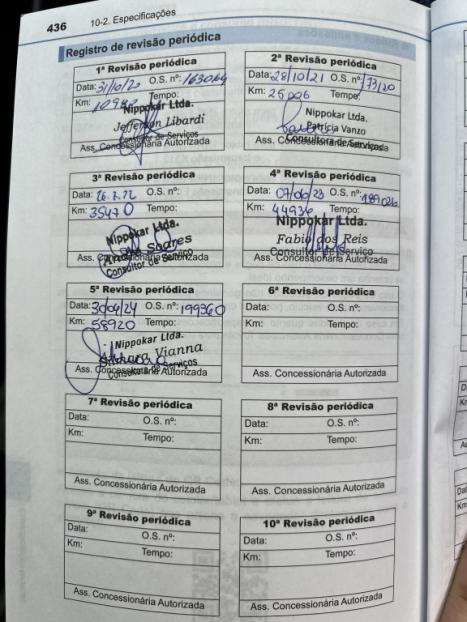 436
10-2. Especificações
Registro de revisão periódica
1ª Revisão periódica
Data: 31/10/20 O.S. nº: 163069
Km: Tempo:
Nippokar Ltda.
Jefferson Libardi
Consultor de Serviços
Ass. Concessionária Autorizada
2ª Revisão periódica
Data: 28/10/21 O.S. nº: 173120
Km: 25006 Tempo:
Nippokar Ltda.
Patrícia Vanzo
Consultora de Serviços
Ass. Concessionária Autorizada
3ª Revisão periódica
Data: 26.7.22 O.S. nº:
Km: 35470 Tempo:
Nippokar Ltda.
Soares
Consultor de Serviços
Ass. Concessionária Autorizada
4ª Revisão periódica
Data: 07/06/23 O.S. nº: 189026
Km: 44936 Tempo:
Nippokar Ltda.
Fabio dos Reis
Consultor de Serviço
Ass. Concessionária Autorizada
5ª Revisão periódica
Data: 30/04/24 O.S. nº: 199360
Km: 58920 Tempo:
Nippokar Ltda.
Vianna
Consultora de Serviços
Ass. Concessionária Autorizada
6ª Revisão periódica
Data: O.S. nº:
Km: Tempo:
Ass. Concessionária Autorizada
7ª Revisão periódica
Data: O.S. nº:
Km: Tempo:
Ass. Concessionária Autorizada
8ª Revisão periódica
Data: O.S. nº:
Km: Tempo:
Ass. Concessionária Autorizada
9ª Revisão periódica
Data: O.S. nº:
Km: Tempo:
Ass. Concessionária Autorizada
10ª Revisão periódica
Data: O.S. nº:
Km: Tempo:
Ass. Concessionária Autorizada